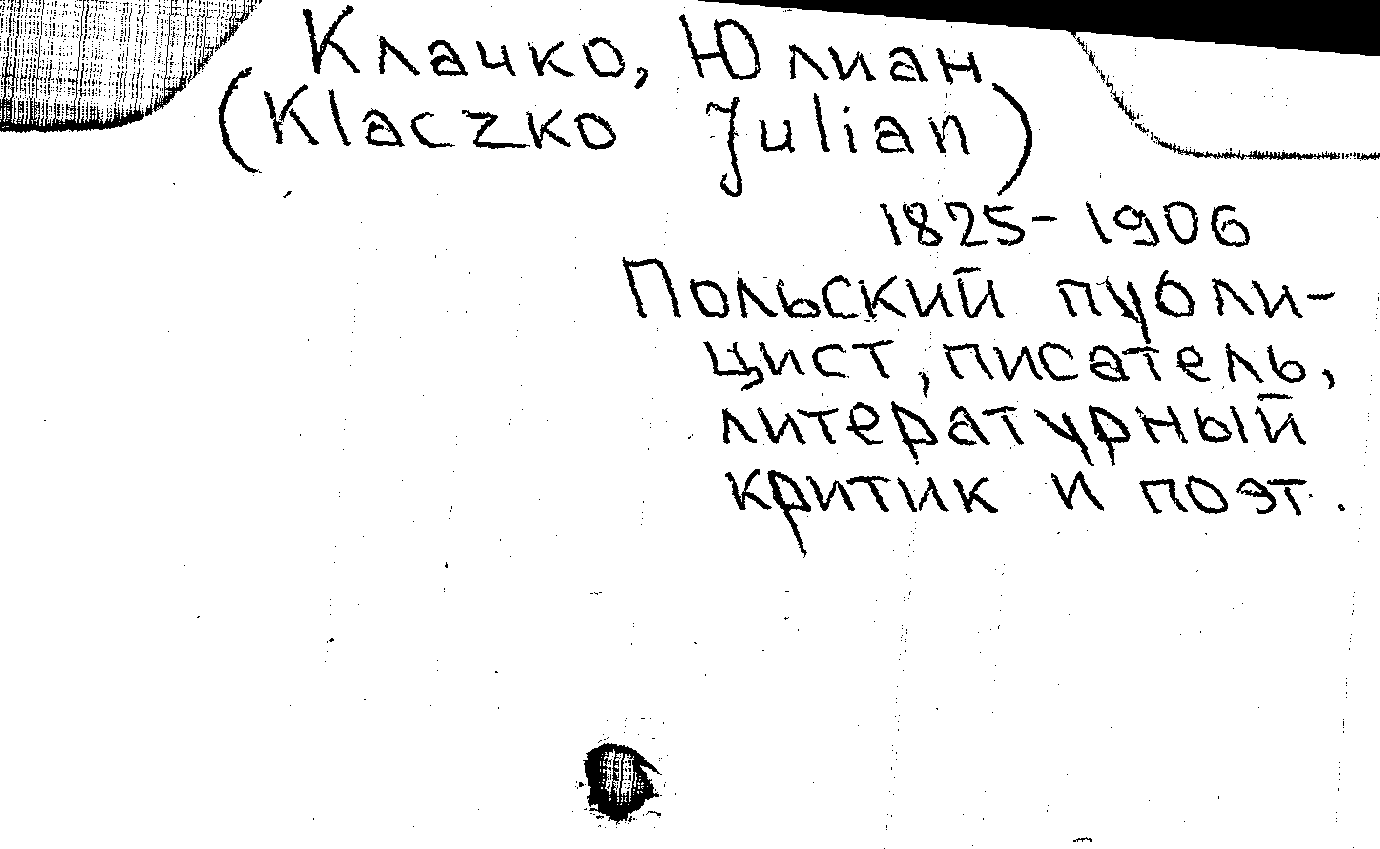 Клачко, Юлиан
(Klaczko Julian)
1825-1906
Польский публи-
цист, писатель,
литературный
критик и поэт.